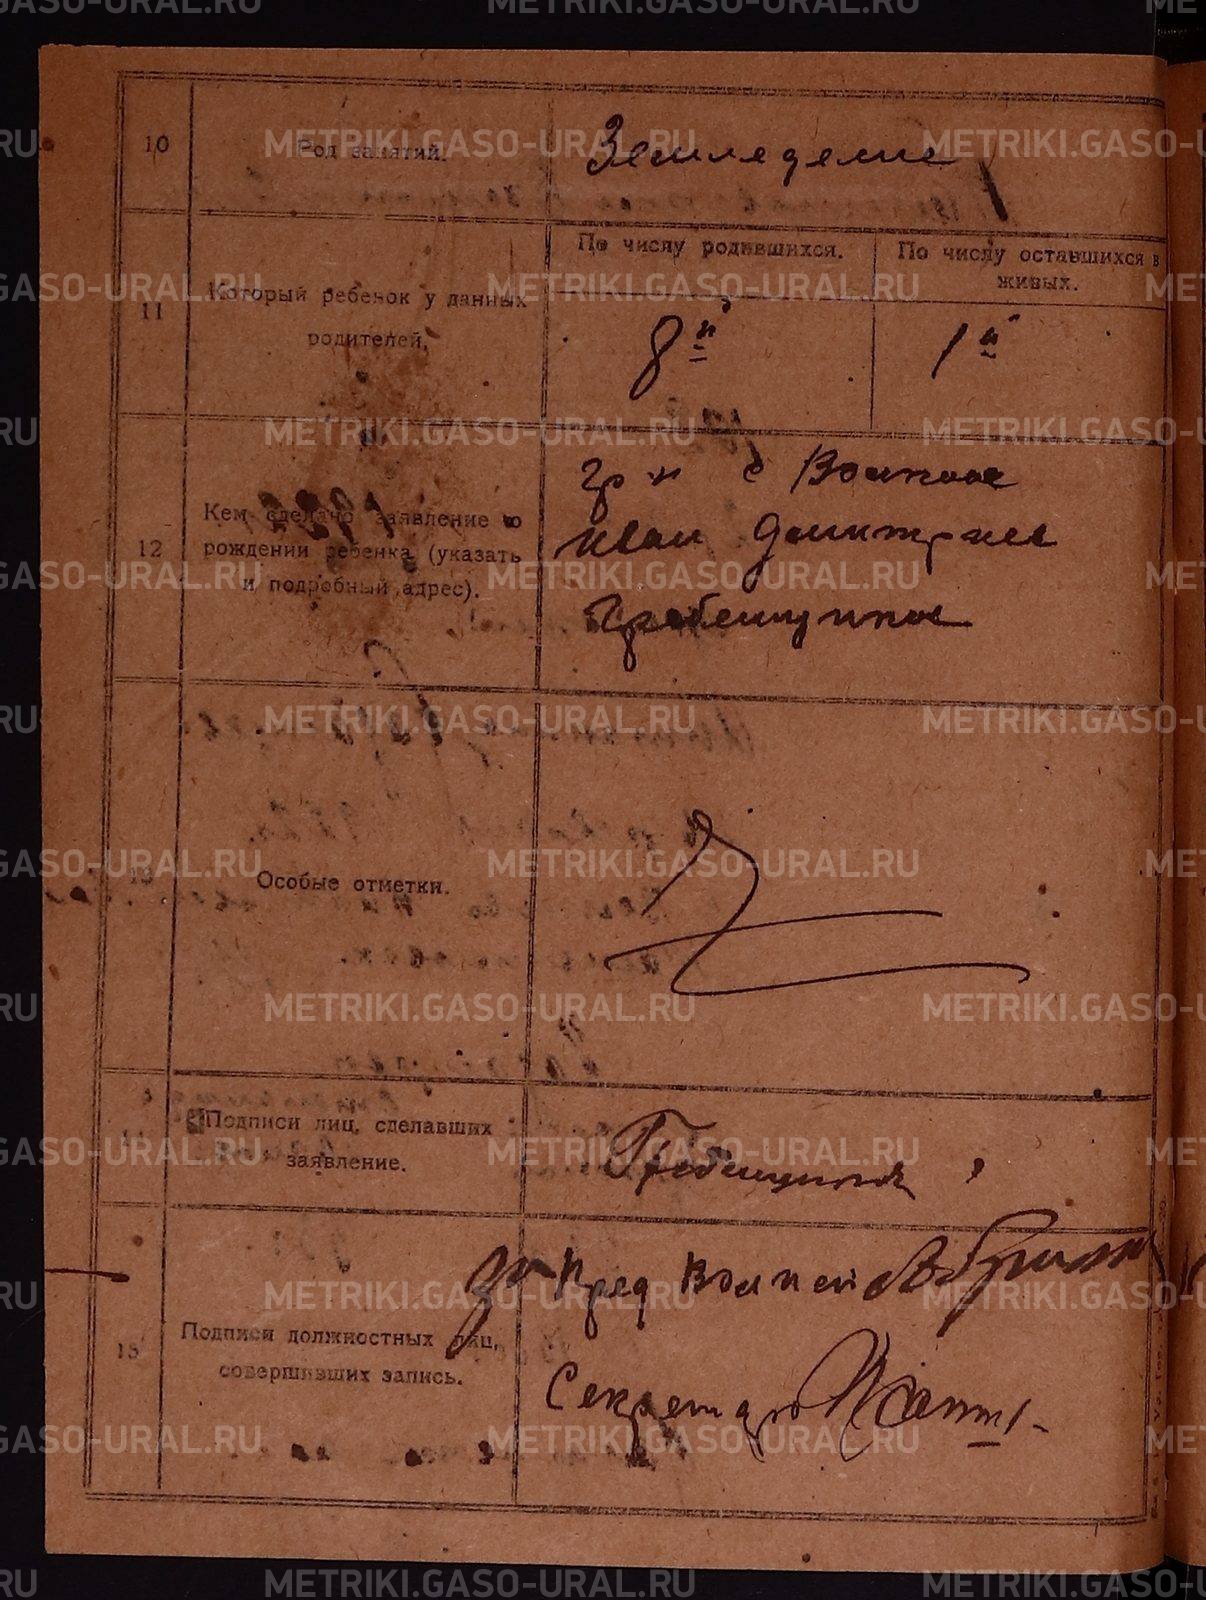 10
Род занятий.
Земледелие
11
Который ребенок у данных
родителей.
По числу родившихся.
По числу оставшихся в
живых.
8й
1й
12
Кем сделано заявление о
рождении ребенка (указать
и подробный адрес).
гр-н с
Иван Дмитриев
Гребенщиков
13
Особые отметки.
14
Подписи лиц, сделавших
заявление.
Гребенщиков
15
Подписи должностных лиц,
совершивших запись.
Пред
Секретарь
METRIKI.GASO-URAL.RU